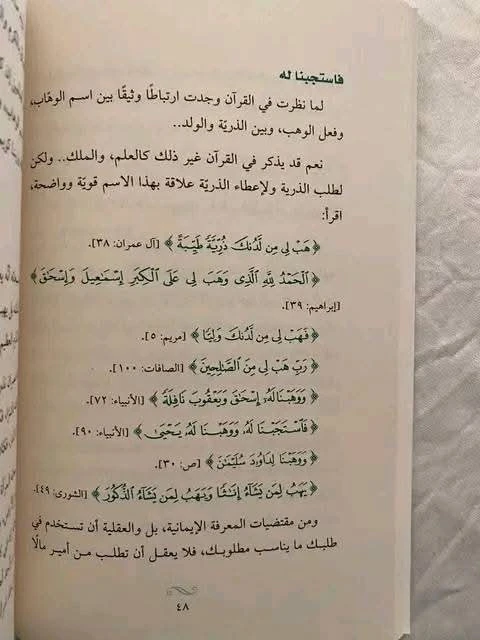 فاستجبنا له
لما نظرت في القرآن وجدت ارتباطًا وثيقًا بين اسم الوهّاب،
وفعل الوهب، وبين الذريّة والولد..
نعم قد يذكر في القرآن غير ذلك كالعلم، والملك.. ولكن
لطلب الذرية ولإعطاء الذريّة علاقة بهذا الاسم قويّة وواضحة،
اقرأ:
﴿هَبْ لِي مِن لَّدُنكَ ذُرِّيَّةً طَيِّبَةً﴾ [آل عمران: ٣٨].
﴿الْحَمْدُ لِلَّهِ الَّذِي وَهَبَ لِي عَلَى الْكِبَرِ إِسْمَاعِيلَ وَإِسْحَاقَ﴾
[إبراهيم: ٣٩].
﴿فَهَبْ لِي مِن لَّدُنكَ وَلِيًّا﴾ [مريم: ٥].
﴿رَبِّ هَبْ لِي مِنَ الصَّالِحِينَ﴾ [الصافات: ١٠٠].
﴿وَوَهَبْنَا لَهُ إِسْحَاقَ وَيَعْقُوبَ نَافِلَةً﴾ [الأنبياء: ٧٢].
﴿فَاسْتَجَبْنَا لَهُ وَوَهَبْنَا لَهُ يَحْيَىٰ﴾ [الأنبياء: ٩٠].
﴿وَوَهَبْنَا لِدَاوُودَ سُلَيْمَانَ﴾ [ص: ٣٠].
﴿يَهَبُ لِمَن يَشَاءُ إِنَاثًا وَيَهَبُ لِمَن يَشَاءُ الذُّكُورَ﴾ [الشورى: ٤٩].
ومن مقتضيات المعرفة الإيمانية، بل والعقلية أن تستخدم في
طلبك ما يناسب مطلوبك، فلا يعقل أن تطلب من أمير مالًا
٤٨